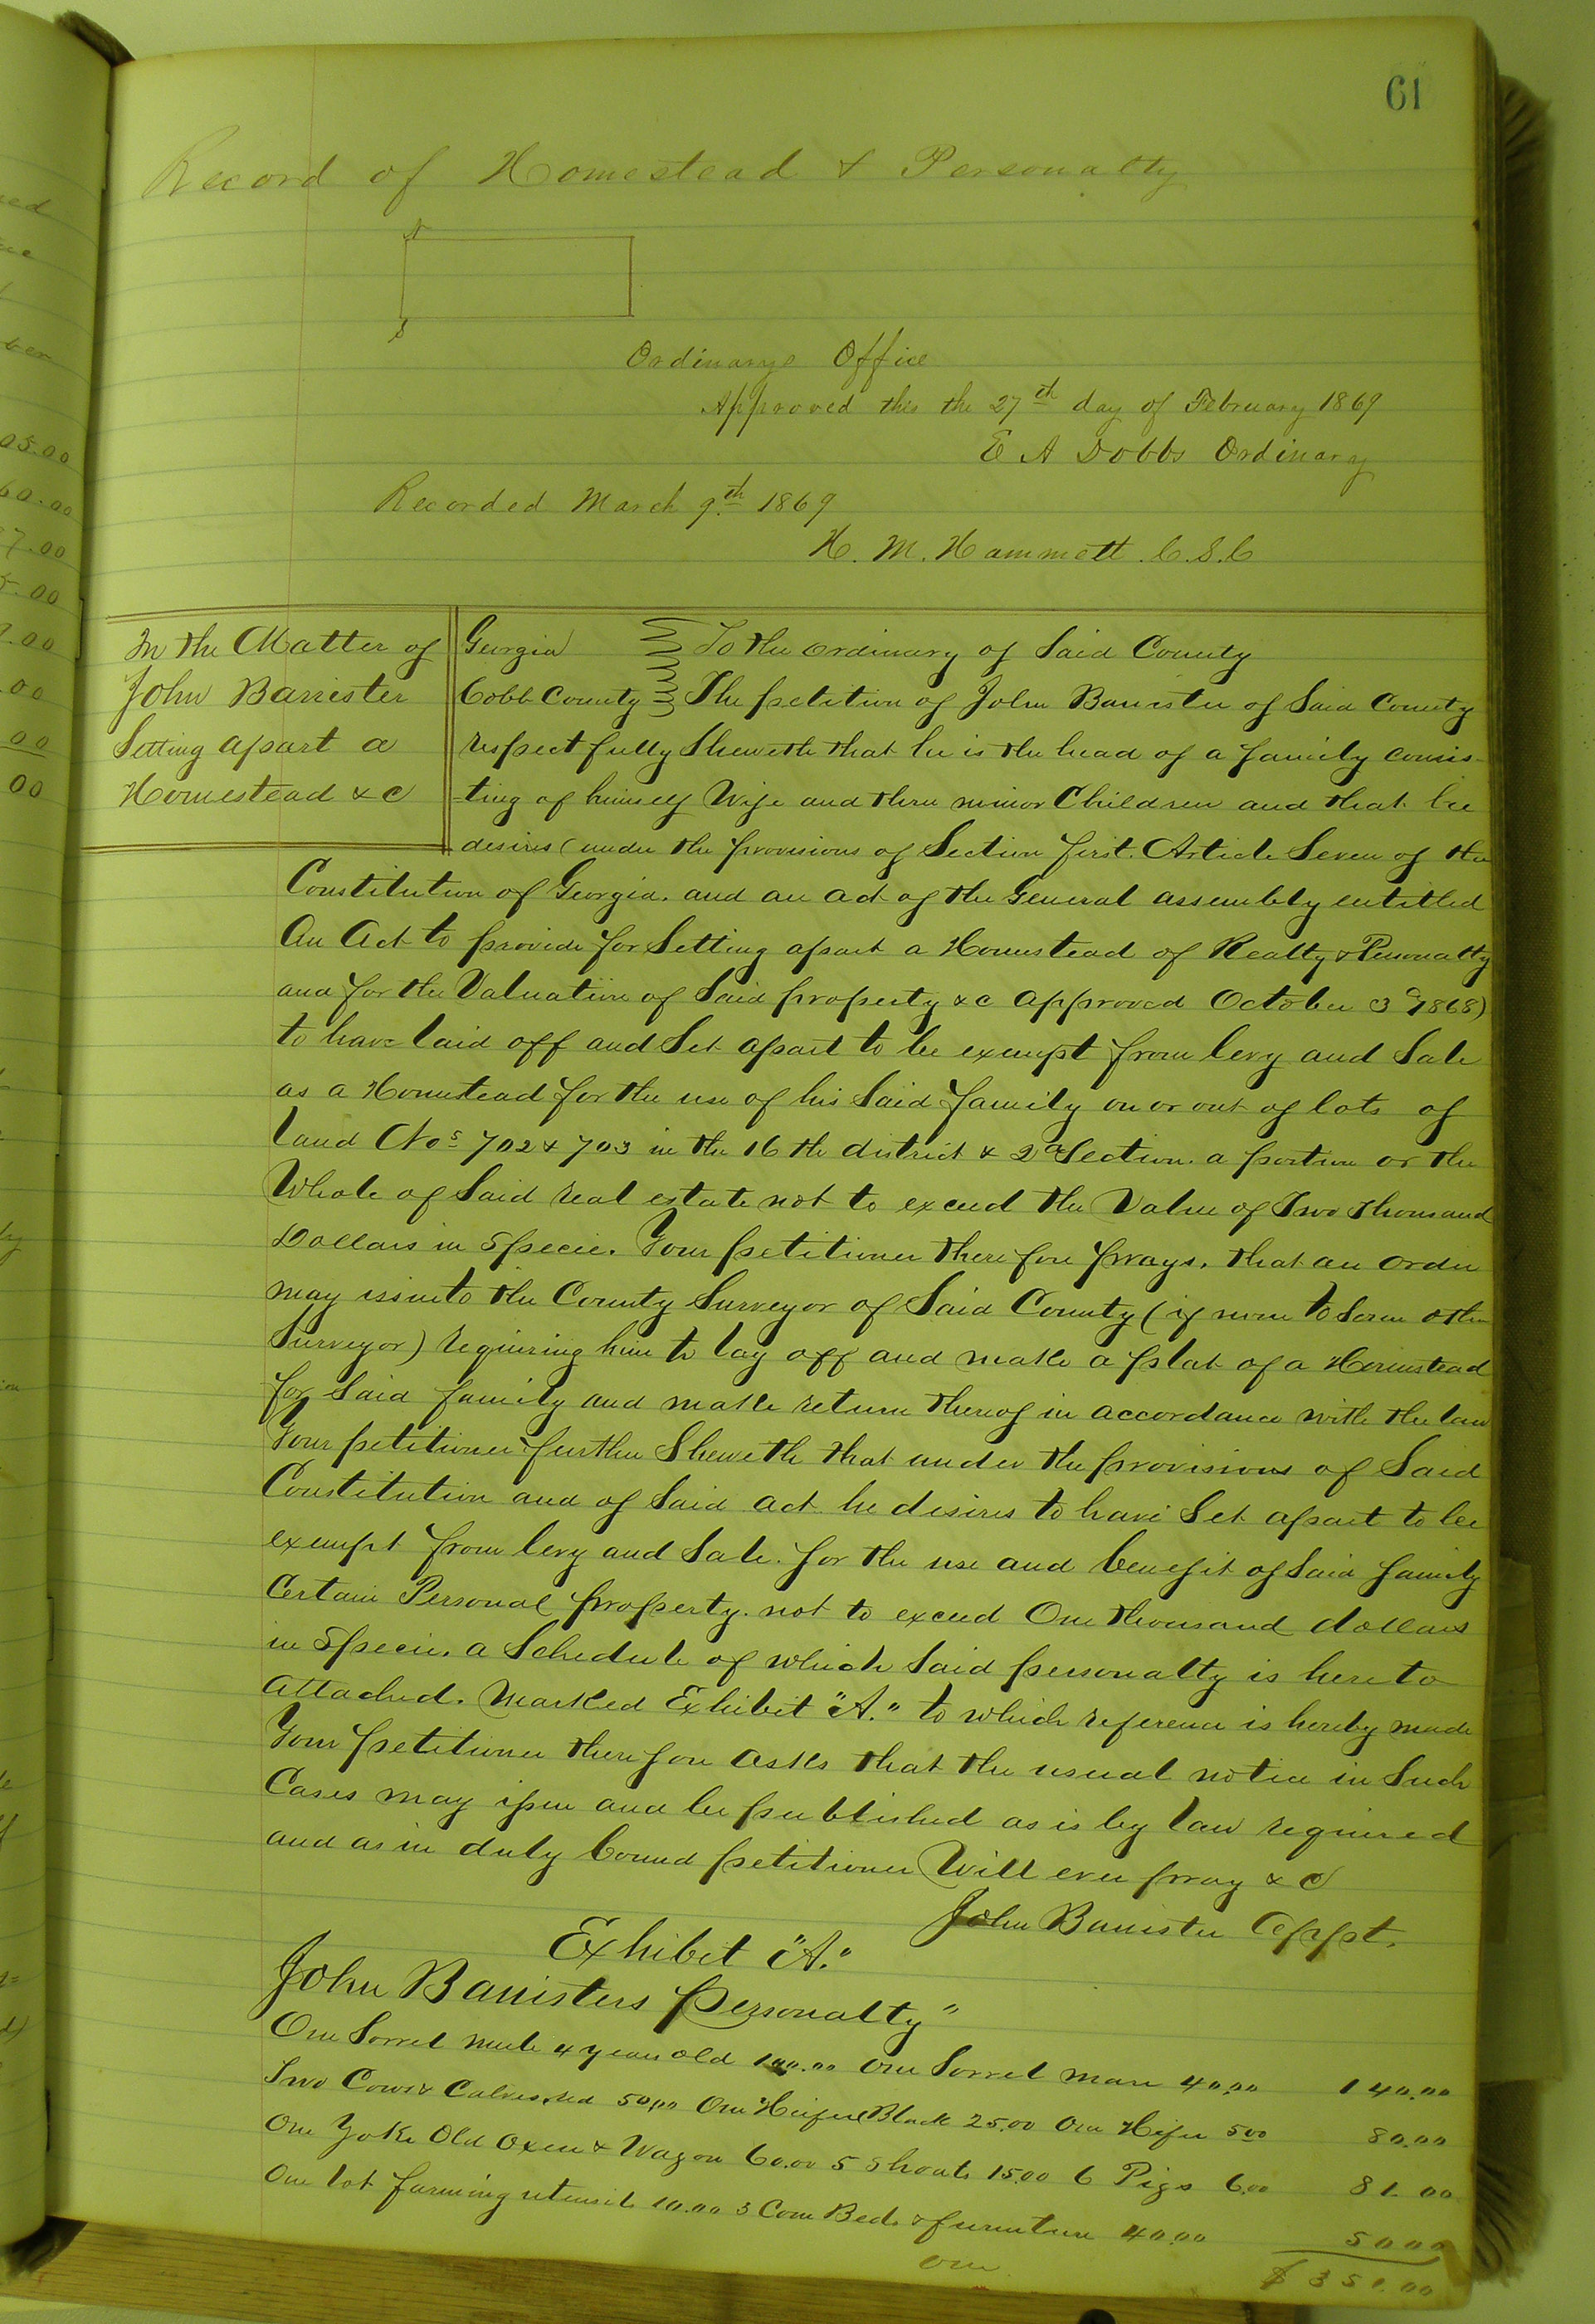 61
Record of Homestead & Personalty
N
S
Ordinarys Office
Approved this the 27th day of February 1869
E A Dobbs Ordinary
Recorded March 9th 1869
H. M. Hammett C.S.C
In the Matter of
John Banister
Setting apart a
Homestead &c
Georgia To the ordinary of Said County
Cobb County The petition of John Banister of Said County
respectfully Sheweth that he is the head of a family consis-
-ting of himself Wife and three minor Children and that he
desires (under the provisions of Section first. Article Seven of the
Constitution of Georgia. and an act of the General assembly entitled
An Act to provide for Setting apart a Homestead of Realty & Personalty
and for the Valuation of Said property &c approved October 3d 1868)
to have laid off and Set apart to be exempt from levy and Sale
as a Homestead for the use of his Said family on or out of lots of
land Nos 702 & 703 in the 16th district & 2d Section. a portion or the
Whole of Said real estate not to exceed the Value of Two Thousand
Dollars in Specie. Your petitioner therefore prays. that an order
may issue to the County Surveyor of Said County (if none to Some other
Surveyor) requiring him to lay off and make a plat of a Homestead
for Said family and make return thereof in accordance with the law
Your petitioner further Sheweth that under the provisions of Said
Constitution and of Said act he desires to have Set apart to be
exempt from levy and Sale. for the use and benefit of Said family
Certain Personal property. not to exceed One thousand dollars
in Specie. a Schedule of which Said personalty is here to
attached. Marked Exhibit "A." to which reference is hereby made
Your petitioner therefore asks that the usual notice in Such
Cases may issue and be published as is by law required
and as in duty bound petitioner Will ever pray &c
John Banister Appt.
Exhibit "A."
John Banisters Personalty"
One Sorrel mule 4 years old 100.00 One Sorrel mare 40.00 140.00
Two Cows & Calves red 50.00 One Heifer Black 25.00 One Heifer 5.00 80.00
One Yoke Old Oxen & Wagon 60.00 5 Shoats 15.00 6 Pigs 6.00 81.00
One lot farming utensils 10.00 3 Com Beds & furniture 40.00 50.00
One $351.00